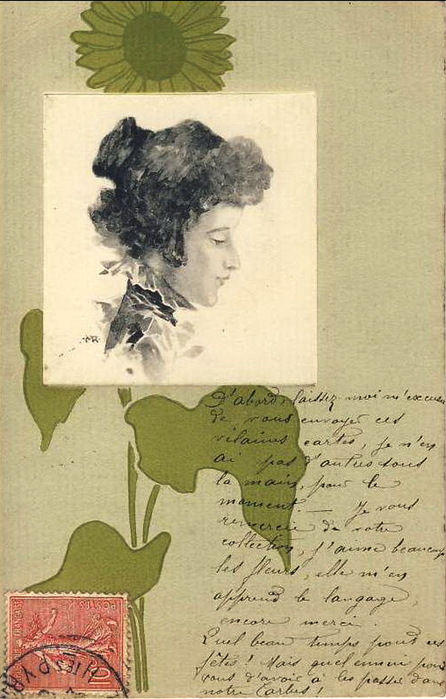 MR
D'abord, laissez-moi m'excuser
de vous envoyer ces
vilaines cartes, je n'en
ai pas d'autres sous
la main, pour le
moment. — Je vous
remercie de votre
collection, j'aime beaucoup
les fleurs, elle m'en
apprend le langage,
encore merci.
Quel beau temps pour ces
fêtes! Mais quel ennui pour
vous d'avoir à les passer dans
notre Carlus
POSTES
10